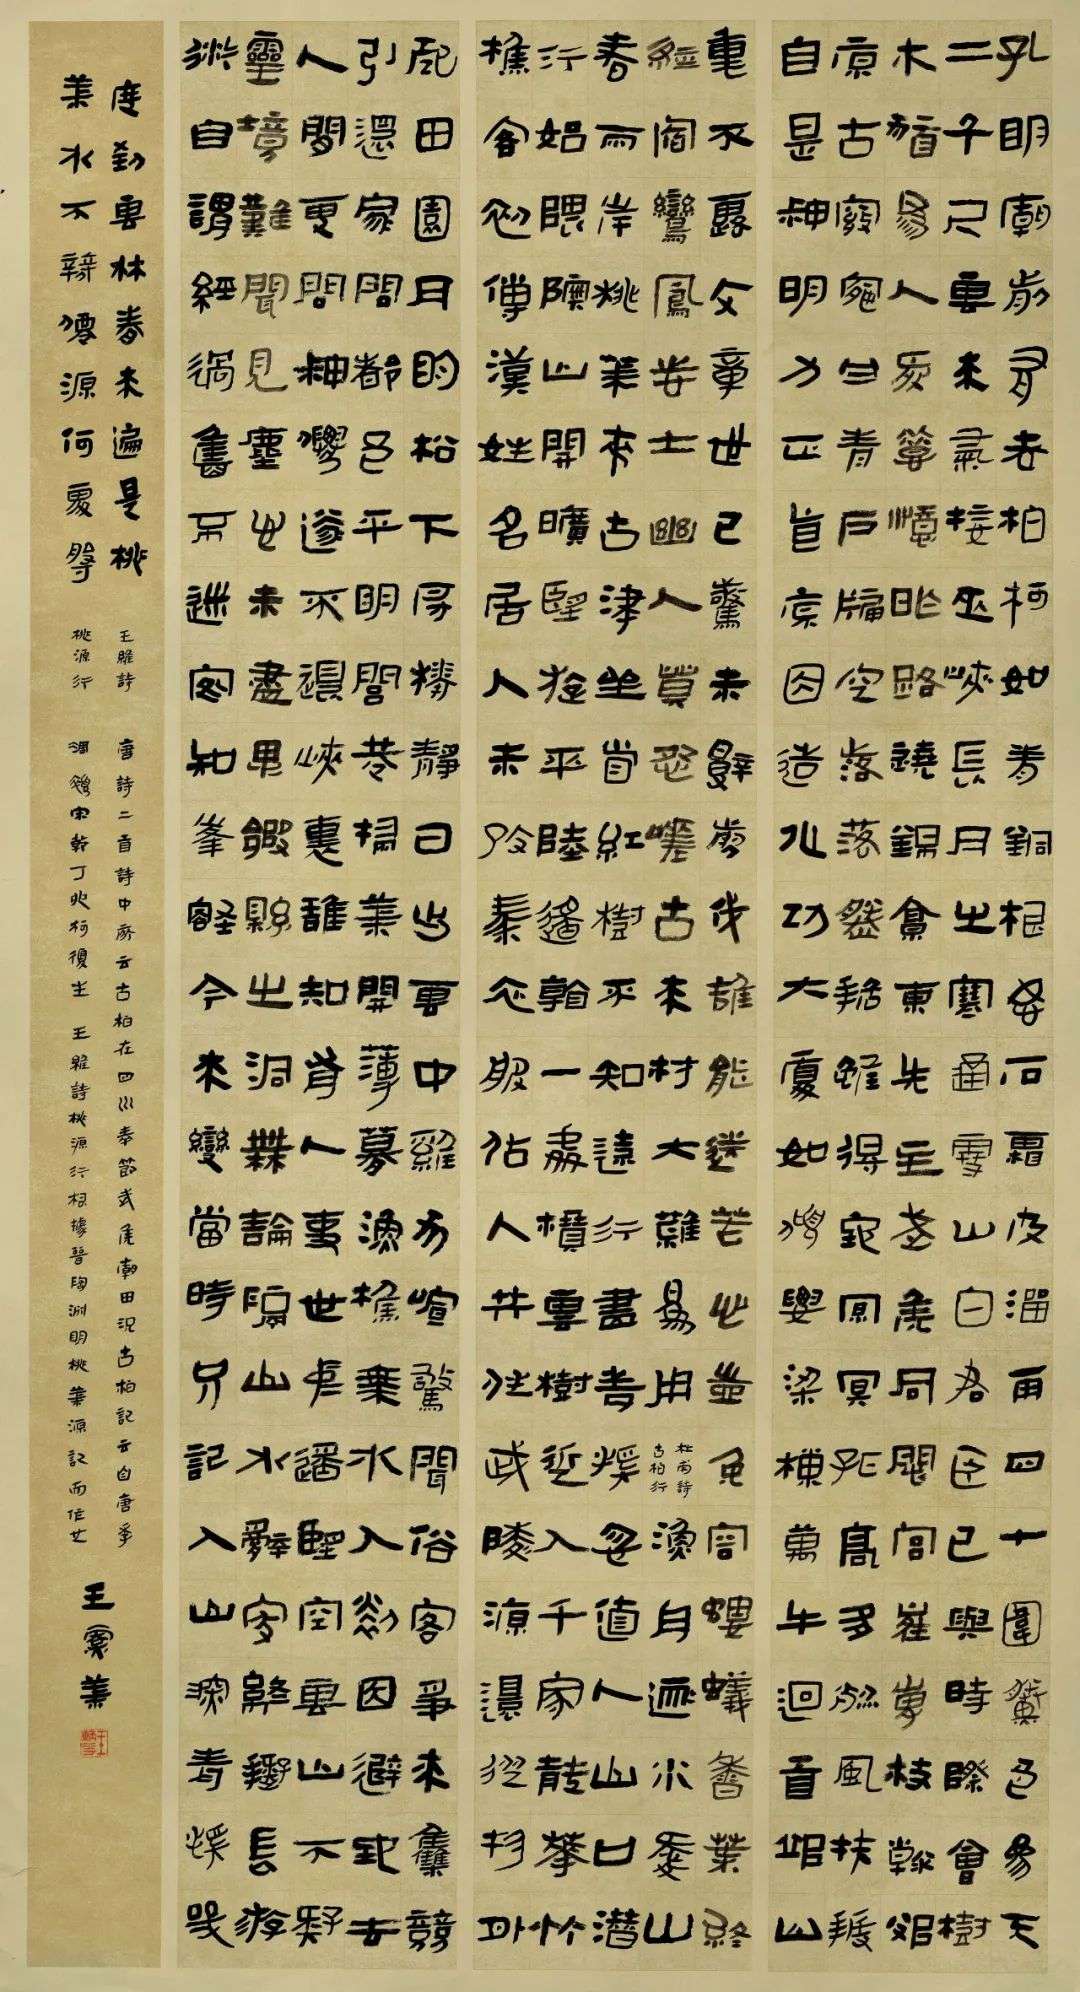 孔明廟前有老柏柯如青銅根如石霜皮溜雨四十圍黛色參天
二千尺雲來氣接巫峽長月出寒通雪山白君臣已與時際會樹
木猶為人愛惜憶昨路繞錦亭東先主武侯同閟宮崔嵬枝幹郊
原古窈窕丹青戶牖空落落盤踞雖得地冥冥孤高多烈風扶持
自是神明力正直原因造化功大廈如傾要梁棟萬牛迴首丘山
重不露文章世已驚未辭翦伐誰能送苦心豈免容螻蟻香葉終
經宿鸞鳳志士幽人莫怨嗟古來材大難為用
杜甫詩
古柏行
漁舟逐水愛山
春兩岸桃花夾古津坐看紅樹不知遠行盡青溪忽值人山口潛
行始隈隩山開曠望旋平陸遙看一處攢雲樹近入千家散花竹
樵客初傳漢姓名居人未改秦衣服居人共住武陵源還從物外
起田園月明松下房櫳靜日出雲中雞犬喧驚聞俗客爭來集競
引還家問都邑平明閭巷掃花開薄暮漁樵乘水入初因避地去
人間更問神仙遂不還峽裏誰知有人事世中遙望空雲山不疑
靈境難聞見塵心未盡思鄉縣出洞無論隔山水辭家終擬長游
衍自謂經過舊不迷安知峯壑今來變當時只記入山深青溪幾
度到雲林春來遍是桃
花水不辨僊源何處尋
王維詩
桃源行
唐詩二首詩中所云古柏在四川奉節武侯廟田況古柏記云自唐季
凋瘁宋乾丁卯柯復生 王維詩桃源行根據晉陶淵明桃花源記而作也